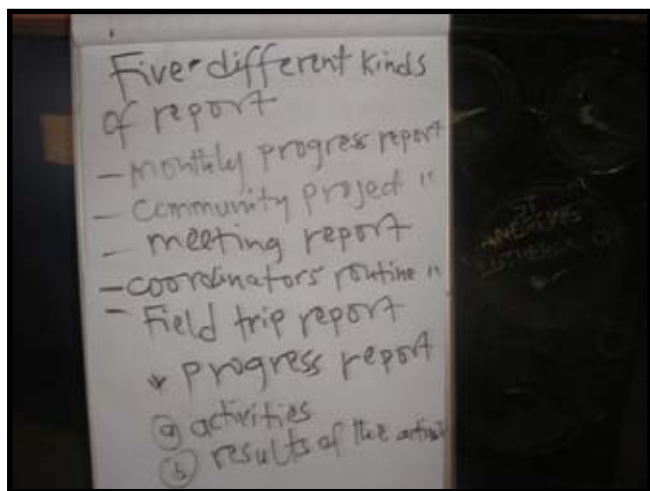 Five different kinds
of report
- monthly progress report
- Community project "
- meeting report
- coordinators' routine "
- Field trip report
* progress report
(a) activities
(b) results of the
ST
ANDREWS
LUTHERAN